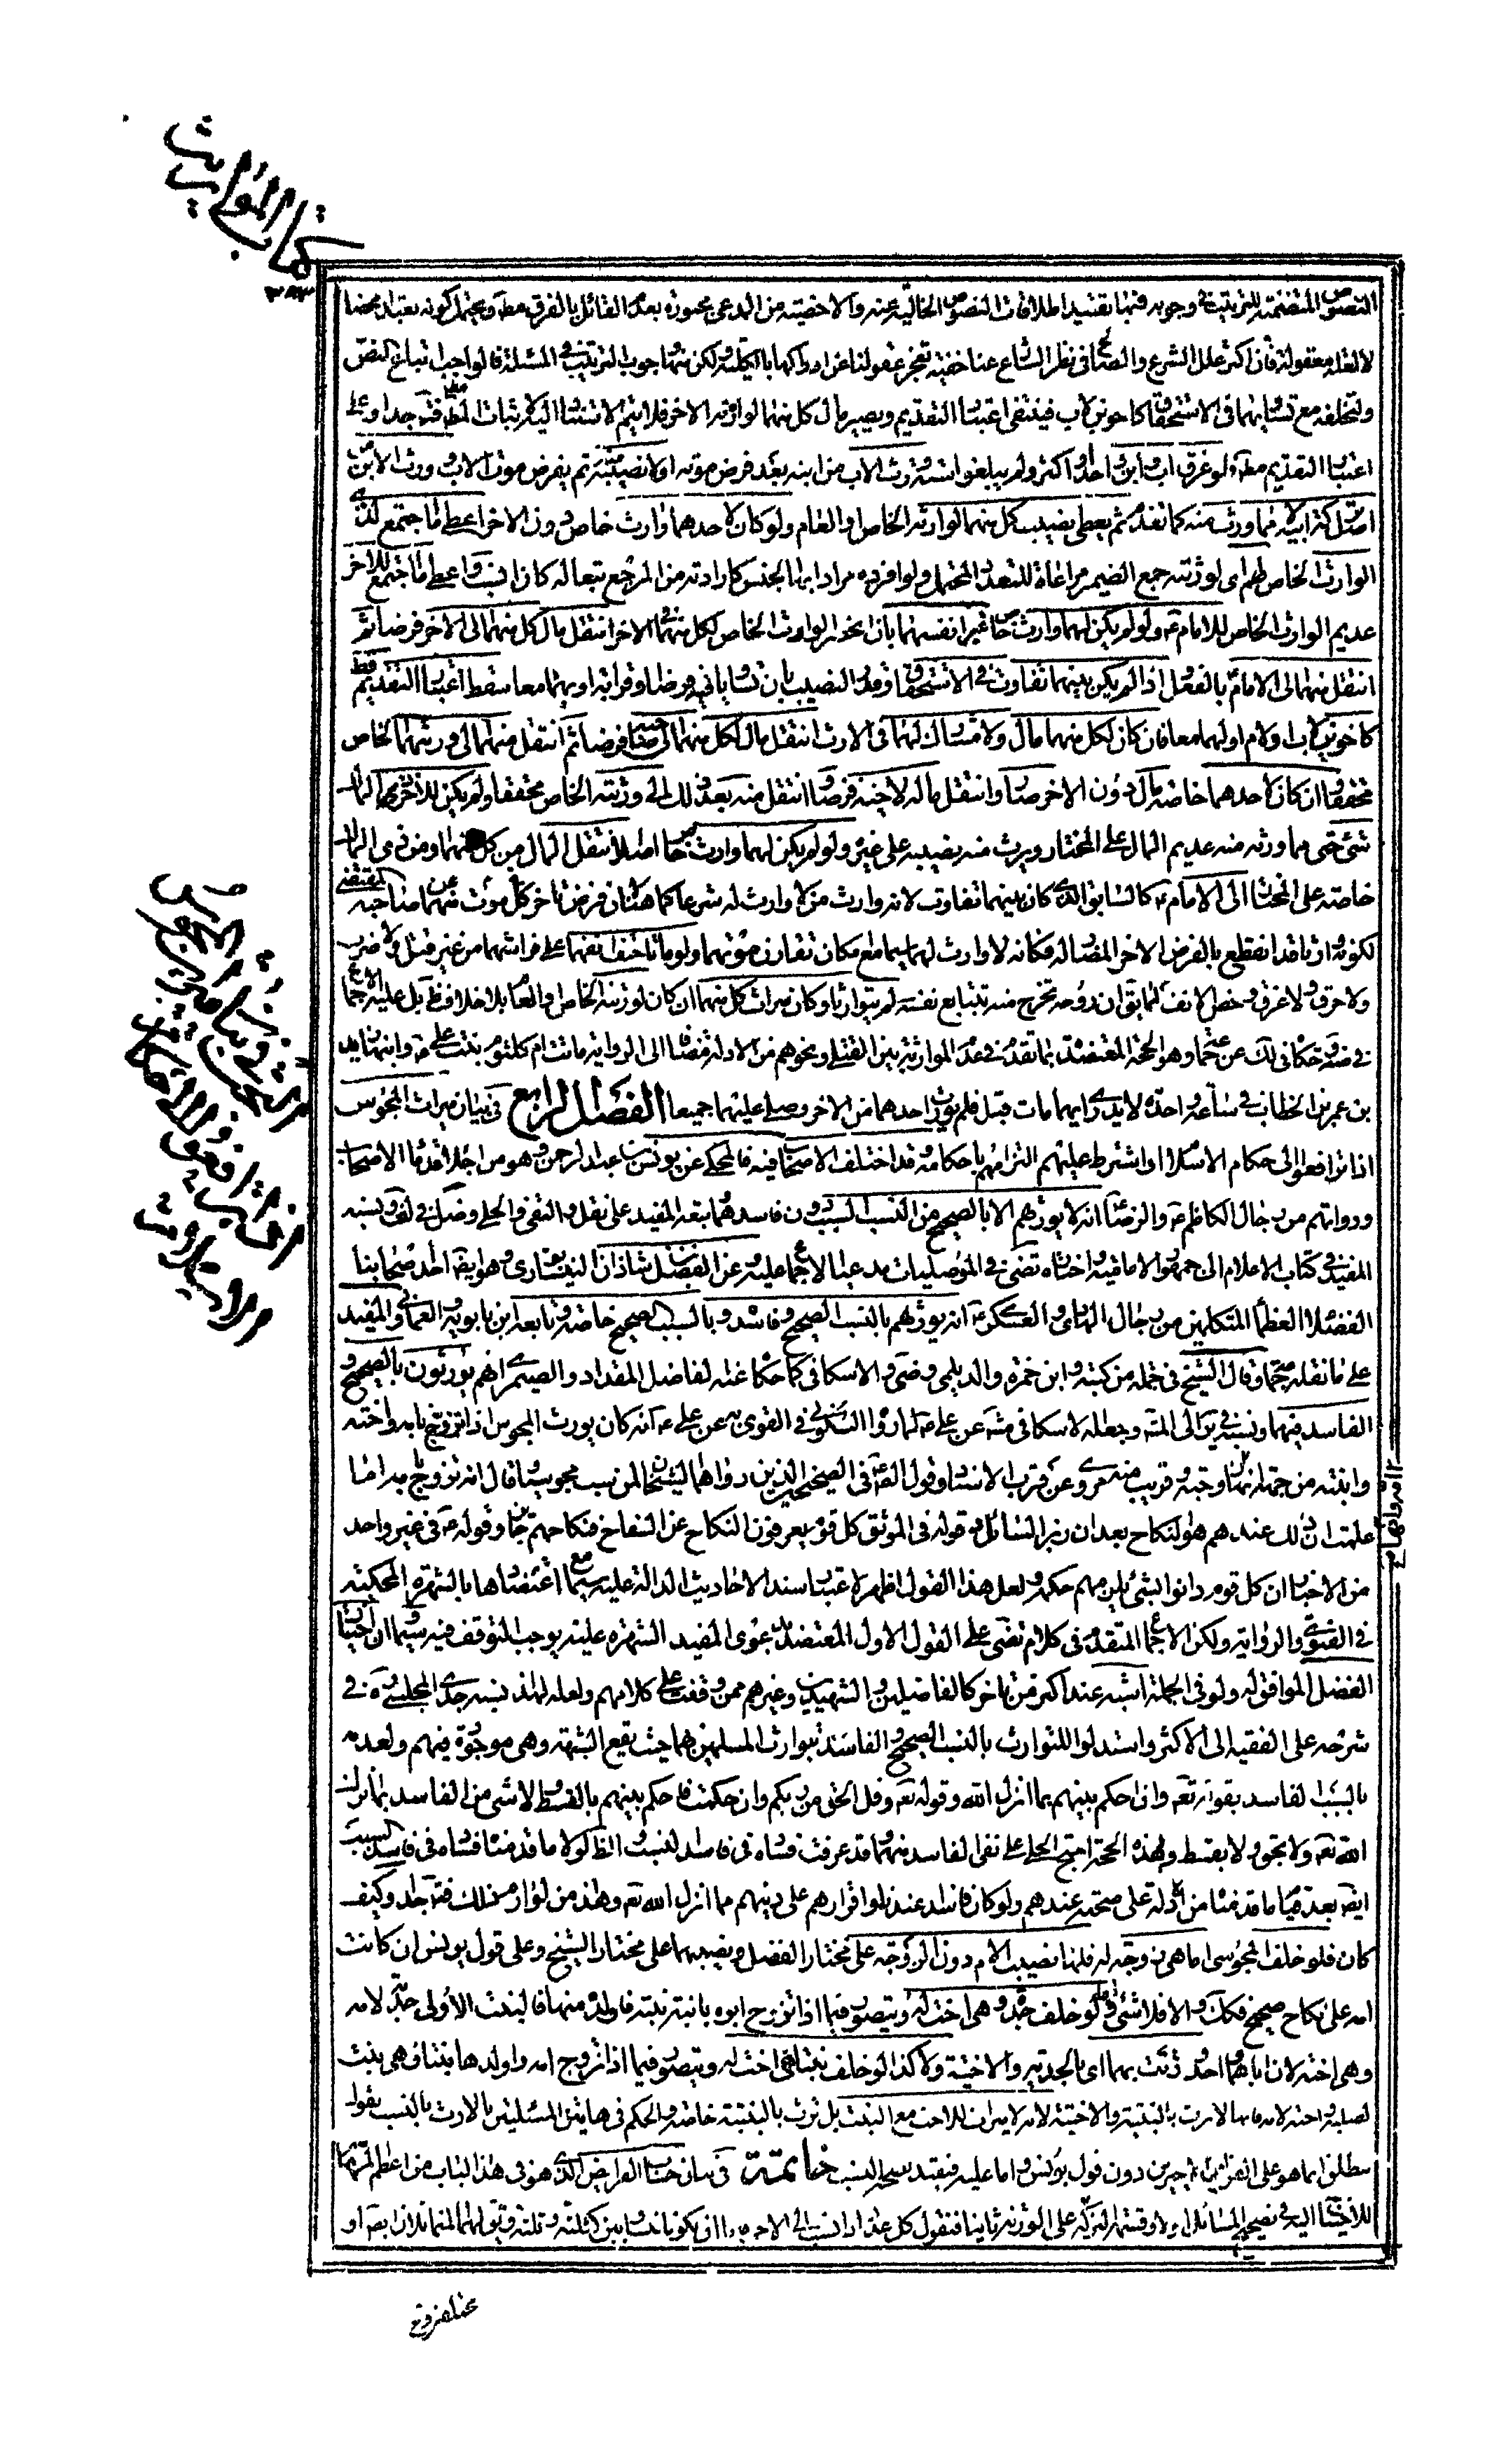 كتاب المواريث
٣٨٣
النصوص المتضمنة للترتيب في وجوبه فيها تقييد اطلاقات النصوص الخالية عنه والاخصية من المدعى مجبورة بعدم القائل بالفرق مطه ويحتمل كونه تعبدا محضا
لا لعلة معقولة فان اكثر علل الشرع والمصالح في نظر الشارع عنا خفية تعجز عقولنا عن ادراكها بالكلية ولكن منها وجوب الترتيب في المسئلة فالواجب اتباع النص
ولتخلفه مع تساويهما في الاستحقاق كاخوين لاب فينتفى اعتبار التقديم ويصير مال كل منهما لوارثه الاخر فلا يتم الاستناد اليه لاثبات المط فتأمل جدا وعلى
اعتبار التقديم مطه لو غرق اب وابن واحد او اكثر ولم يبلغوا ستة ورث الاب من ابنه بعد فرض موته اولا نصيبه ثم يفرض موت الاب وورث الابن من
اصل تركة ابيه لا مما ورث منه كما تقدم ثم يعطى نصيب كل منهما لوارثه الخاص او العام ولو كان لاحدهما وارث خاص دون الاخر اعطى ما اجتمع لذي
الوارث الخاص لهم اى لورثته جمع الضمير مراعاة للتعدد المحتمل ولو افرده مرادا به الجنس كارادته من المرجع تبعا له كان انسب واعطى ما اجتمع للاخر
عديم الوارث الخاص للامام ع ولو لم يكن لهما وارث خاص غير انفسهما بان انحصر الوارث الخاص لكل منهما في الاخر انتقل مال كل منهما الى الاخر فرضا ثم
انتقل منهما الى الامام بالفعل اذا لم يكن بينهما تفاوت في الاستحقاق وقدر النصيب بان تساويا فيه فرضا او قرابة او بهما معا سقط اعتبار التقديم قط
كاخوين لاب او لام او لهما معا فان كان لكل منهما مال ولا مشارك لهما في الارث انتقل مال كل منهما الى صاحبه فرضا ثم انتقل منهما الى ورثتهما الخاص
محققا وان كان لاحدهما خاصة مال دون الاخر صار وانتقل ماله لاخيه فرضا وانتقل منه بعد ذلك الى ورثته الخاص محققا ولم يكن للاخر ذي المال
شئ حتى مما ورثه منه عديم المال على المختار ويرث منه نصيبه على غيره ولو لم يكن لهما وارث خاص اصلا انتقل المال من كل منهما ومن ذي المال
خاصة على المختار الى الامام ع كالسابق الذي كان بينهما تفاوت لانه وارث من لا وارث له شرعا كما هنا فان فرض تاخر كل موت منهما عن صاحبه المقتضى
لكونه ارثا قد انقطع بالفرض الاخر المضاد له فكانه لا وارث لهما سيما مع مكان تقارن موتهما ولو ماتا حتف انفهما على فراشهما من غير قتل ولا ضرب
ولا حرق ولا غرق وخص الانف لما بق ان روحه تخرج منه بتتابع نفسه لم يتوارثا وكان ميراث كل منهما ان كان لورثته الخاص والعام بلا خلاف ظ بل عليه الاجماع
في ضة حكاه في لك عن جماعة وهو الحجة المعتضدة بما تقدم في عدم الموارثة بين القتلى ونحوهم من الادلة مضافا الى الرواية ماتت ام كلثوم بنت على ع وابنها زيد
بن عمر بن الخطاب في ساعة واحدة لا يدرى ايهما مات قبل فلم يورث احدهما من الاخر وصلى عليهما جميعا الفصل الرابع في بيان ميراث المجوس
اذا ترافعوا الى حكام الاسلام او اشترط عليهم التزامهم باحكامه وقد اختلف الاصحاب فيه فالمحكى عن يونس بن عبد الرحمن وهو من اجلاء قدماء الاصحاب
ورواتهم من رجال الكاظم ع والرضا ع انه لا يورثهم الا بالصحيح من النسب والسبب دون فاسدهما وتبعه المفيد على نقل والتقى والحلى وفضل في لف ونسبه
المفيد في كتاب الاعلام الى جمهور الامامية واختاره تضى في الموصليات مدعيا الاجماع عليه وعن الفضل بن شاذان النيسابورى وهو ايضا احد اصحابنا
الفضلاء العظماء المتكلمين من رجال الهادى والعسكرى ع انه يورثهم بالنسب الصحيح وفاسده وبالسبب الصحيح خاصة وتابعه ابن بابويه والعمانى والمفيد
على ما نقله جماعة وقال الشيخ في جملة من كتبه وابن حمزة والديلمى وضى والاسكافى كما حكاه عنه لفاضل المقداد والصيمرى انهم يورثون بالصحيح و
الفاسد فيهما ونسبه في ير الى المشهور وجعله الاسكافى مشهورا عن على ع لما رواه السكونى في القوى عن على ع انه كان يورث المجوس اذا تزوج بامه واخته
وابنته من جهة انها امه وانها زوجته وقريب منه مروى عن قرب الاسناد وقول الص ع في الصحيحين الذين رواهما الشيخان لمن سب مجوسيا وقال انه تزوج بامه اما
علمت ان ذلك عندهم هو النكاح بعد ان زبر السائل وقوله في الموثق كل قوم يعرفون النكاح عن السفاح فنكاحهم جايز وقوله ع في غير واحد
من الاخبار ان كل قوم دانوا بشئ يلزمهم حكمه ولعل هذا القول اظهر لاعتبار سند الاحاديث الدالة عليه سيما مع اعتضادها بالشهرة المحكية
في الفتوى والرواية ولكن الاجماع المتقدم في كلام تضى على القول الاول المعتضد بدعوى المفيد الشهرة عليه يوجب التوقف فيه سيما وان اختيار
الفضل الموافق له ولو في الجملة اشبه عند اكثر من تاخر كالفاضلين والشهيدين وغيرهم ممن وقفت على كلامهم ولعله لهذا نسبه جدى المجلسى ره في
شرحه على الفقيه الى الاكثر واستدلوا للتوارث بالنسب الصحيح والفاسد بتوارث المسلمين بهما حيث يقع الشبهة وهى موجودة فيهم ولعدمه
بالسبب الفاسد بقوله تعه وان احكم بينهم بما انزل الله وقوله تعه وقل الحق من ربكم وان حكمت فاحكم بينهم بالقسط ولا شئ من الفاسد بما انزل
الله تعه ولا بحق ولا بقسط وبهذه الحجة احتج الحلى على نفى الفاسد منهما وقد عرفت فساده في فاسد النسب والظ لولا ما قدمناه فساده في فاسد السبب
ايضا بعد قيام ما قدمناه من الادلة على صحته عندهم ولو كان فاسدا عندنا واقرارهم على دينهم مما انزل الله تعه وهذا من لوازم ذلك فتأمل جدا وكيف
كان فلو خلف المجوسى اما هى زوجته له فلها نصيب الام دون الزوجة على مختار الفضل ونصيبهما على مختار الشيخ وعلى قول يونس ان كانت
امه على نكاح صحيح فكك والا فلا شئ لها ولو خلف جدة وهى اخت له ويتصور فيما اذا تزوج ابوه بابنته بنته فاولده منها فالبنت الاولى جدته لامه
وهى اخته لان اباهما واحد ورثت بهما اى بالجدتية والاختية ولا كذا لو خلف بنتا هى اخت له ويتصور فيما اذا تزوج امه واولدها بنتا فهى بنت
لصلبه واخته لامه فانها لا ترث بالبنتية والاختية لانه لا ميراث للاخت مع البنت بل ترث بالبنتية خاصة والحكم في هاتين المسئلتين بالارث بالنسب بقول
مطلق انما هو على القولين الاخيرين دون قول يونس واما عليه فيقيد بصحة النسب خاتمة في بيان حساب الفرايض الذى هو في هذا الباب من اعظم المهمات
للاحتياج اليه في تصحيح المسائل اولا وقسمة التركة على الورثة ثانيا فنقول كل عدد اذا نسب الى الاخر فاما ان يكونا متساويين كثلثة وثلثة ويق لهما المتماثلان ايضا او